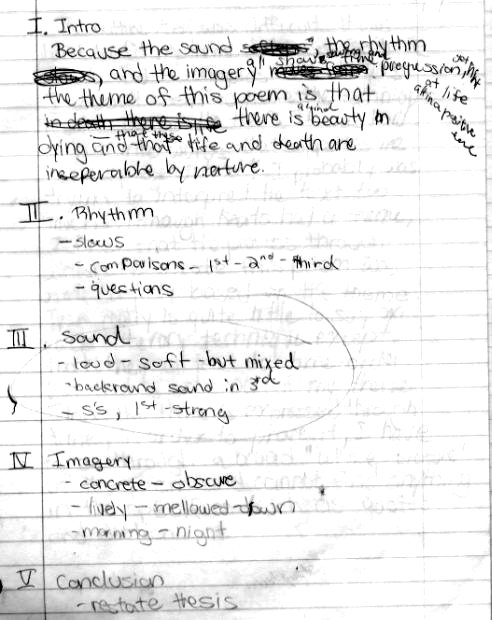 I. Intro
Because the sound, the rhythm
and the imagery show progression,
the theme of this poem is that
in death there is life there is beauty in
dying and that life and death are
inseperable by nature.
of life
II. Rhythm
- slows
- comparisons - 1st - 2nd - third
- questions
III. Sound
- loud - soft - but mixed
- backround sound in 3rd
- s's, 1st - strong
IV Imagery
- concrete - obscure
- lively - mellowed down
- morning - night
V Conclusion
- restate thesis